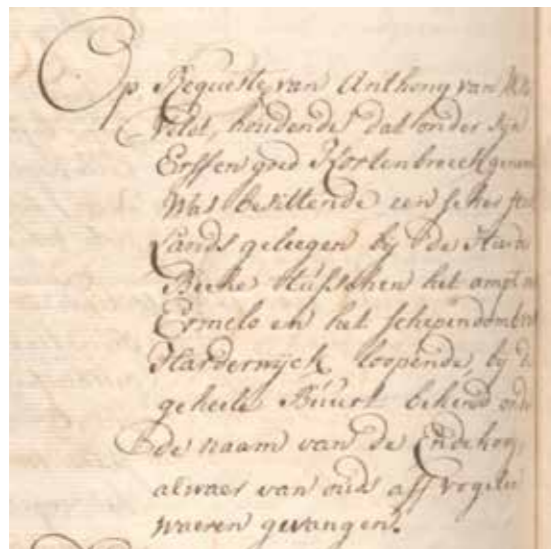 Op Requeste van Anthony van
Velde, houdende dat onder sijn
Erff en goed Kortenbroeck genaem
Was besittende een seker
Lands geleegen bij de
Beeke tusschen het ampt
Ermelo en het schependom
Harderwijck loopende, bij de
geheele Buurt bekend onder
de naam van de Endekoy,
alwaer van ouds aff vogelen
waeren gevangen.